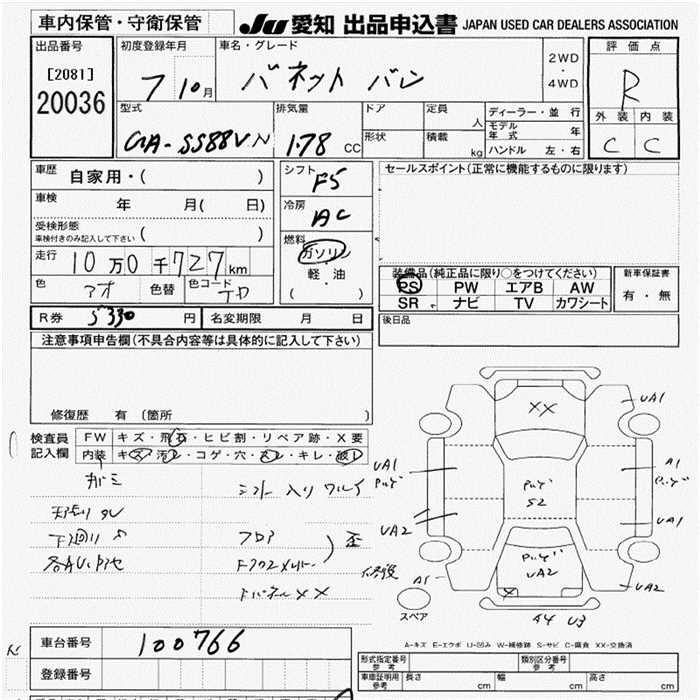 車内保管・守衛保管
JU 愛知 出品申込書 JAPAN USED CAR DEALERS ASSOCIATION
出品番号
[2081]
20036
初度登録年月
7 10月
車名・グレード
バネット バン
2WD
・
4WD
評価点
R
外装 内装
C C
型式
GA-SS88VN
排気量
1.78 CC
ドア
形状
定員
人
積載
kg
ディーラー・並行
モデル年式 年
ハンドル 左・右
車歴
自家用・( )
車検
年 月( 日)
受検形態
車検付きのみ記入して下さい ( )
走行
10万0千727km
色
アオ
色替
色コード
シフト
F5
冷房
AC
燃料
ガソリン
・
軽・油
( )
セールスポイント(正常に機能するものに限ります)
装備品(純正品に限り○をつけてください)
PS PW エアB AW
SR ナビ TV カワシート
新車保証書
有・無
後日品
R券 5330 円
名変期限 月 日
注意事項申告欄(不具合内容等は具体的に記入して下さい)
修復歴 有 〔箇所 〕
検査員
記入欄
FW キズ・飛石・ヒビ割・リペア跡・X要
内装 キズ・汚レ・コゲ・穴・スレ・キレ・破レ
シフト 入り ワルイ
下廻り
フロア
歪
XX
UA1
UA1
A1
UA2
UA1
52
UA2
A1
UA2
X
スペア
A4 U3
A-キズ E-エクボ U-凹み W-補修跡 S-サビ C-腐食 XX-交換済
車台番号 100766
登録番号
形式指定番号
参考
類別区分番号
参考
車庫証明用
参考
長さ cm
幅 cm
高さ cm